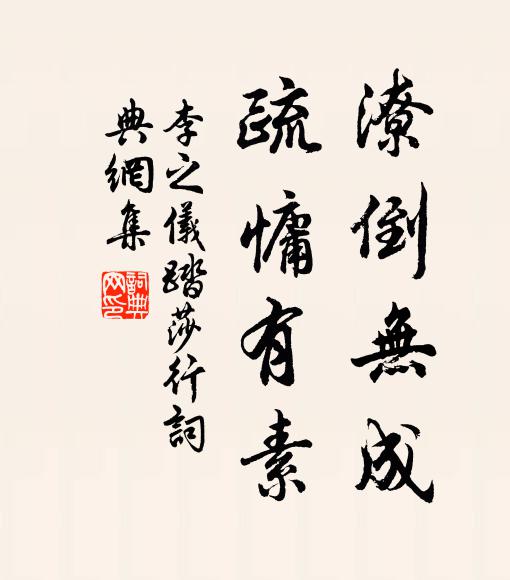 潦倒無成
疏慵有素
李之儀踏莎行詞
典網集
詞典網印